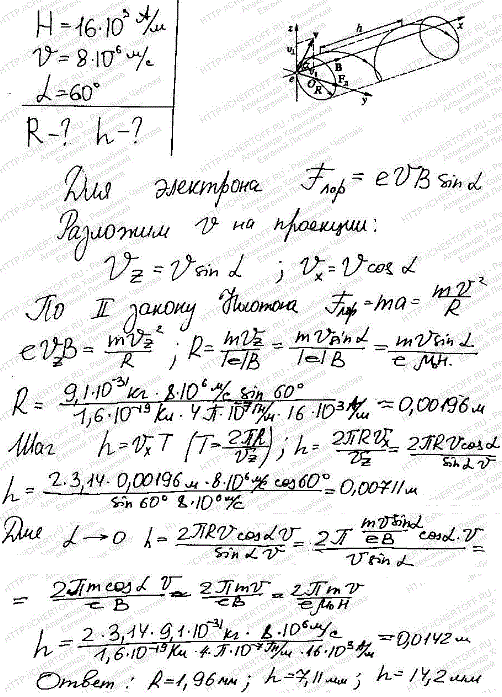 H = 16·10³ А/м
v = 8·10⁶ м/с
α = 60°
R-? h-?
z h x
v₁ B
e F₂
O R y
Для электрона Fлор = eVB sin α
Разложим v на проекции:
Vz = V sin α ; Vx = V cos α
По II закону Ньютона Fлор = ma = mv²/R
eVzB = mVz²/R ; R = mVz/|e|B = mV sin α/|e|B = mV sin α/e μ₀H.
R = 9,1·10⁻³¹ кг · 8·10⁶ м/с sin 60°/1,6·10⁻¹⁹ Кл · 4π·10⁻⁷ Гн/м · 16·10³ А/м = 0,00196 м
Шаг h = Vx T (T = 2πR/Vz) ; h = 2πRVx/Vz = 2πRV cos α/sin α V
h = 2·3,14·0,00196 м · 8·10⁶ м/с cos 60°/sin 60° 8·10⁶ м/с = 0,00711 м
Для α → 0 h = 2πRV cos α V/sin α V = 2π mV sin α/eB cos α · V/V sin α =
= 2πm cos α V/eB ≈ 2πmV/eB = 2πmV/eμ₀H
h = 2·3,14·9,1·10⁻³¹ кг · 8·10⁶ м/с/1,6·10⁻¹⁹ Кл · 4·π·10⁻⁷ Гн/м · 16·10³ А/м = 0,0142 м
Ответ: R = 1,96 мм; h = 7,11 мм; h = 14,2 мм
HTTP://CHERTOFF.RU - Решебник Чертова
Аписимова Евгения Питиримовича